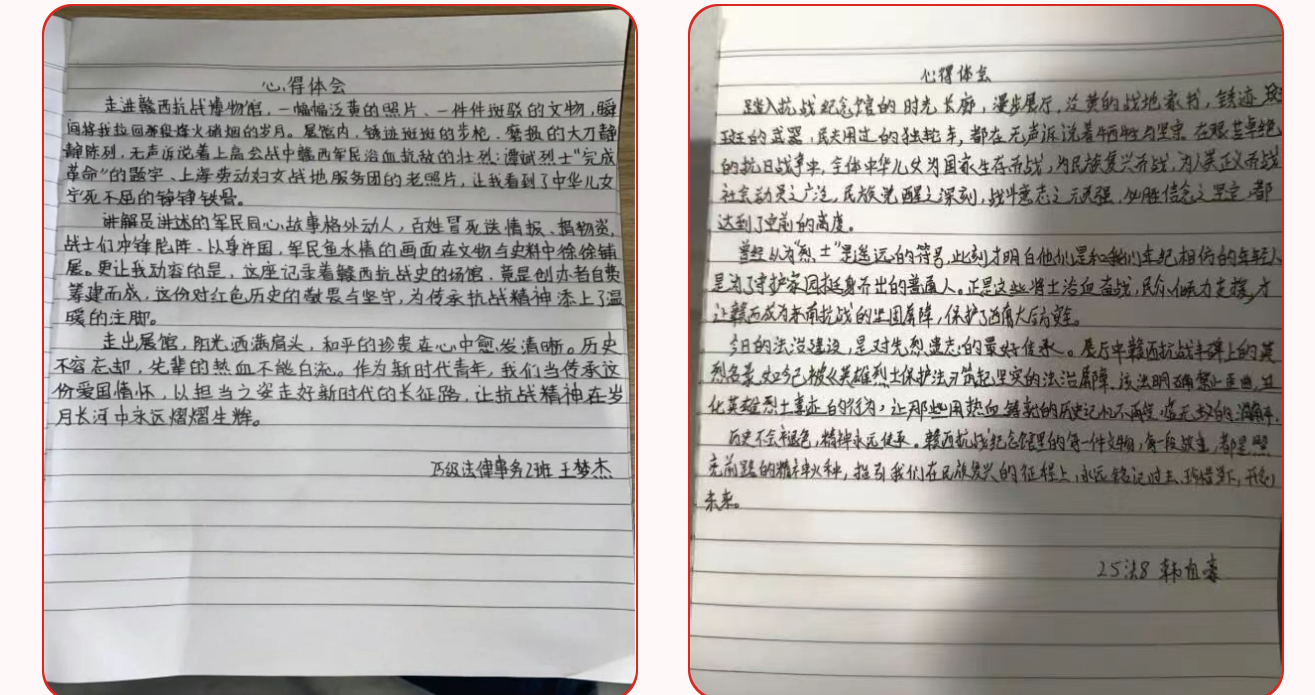 心得体会
走进赣西抗战博物馆，一幅幅泛黄的照片、一件件斑驳的文物，瞬
间将我拉回那段烽火硝烟的岁月。展馆内，锈迹斑斑的步枪、磨损的大刀静
静陈列，无声诉说着上高会战中赣西军民浴血抗敌的壮烈；谭斌烈士“完成
革命”的题字、上海劳动妇女战地服务团的老照片，让我看到了中华儿女
宁死不屈的铮铮铁骨。
讲解员讲述的军民同心故事格外动人，百姓冒死送情报、捐物资，
战士们冲锋陷阵、以身许国，军民鱼水情的画面在文物与史料中徐徐铺
展。更让我动容的是，这座记录着赣西抗战史的场馆，竟是创办者自费
筹建而成，这份对红色历史的敬畏与坚守，为传承抗战精神添上了温
暖的注脚。
走出展馆，阳光洒满肩头，和平的珍贵在心中愈发清晰。历史
不容忘却，先辈的热血不能白流。作为新时代青年，我们当传承这
份爱国情怀，以担当之姿走好新时代的长征路，让抗战精神在岁
月长河中永远熠熠生辉。
25级法律事务2班 王梦杰
心得体会
踏入抗战纪念馆的时光长廊，漫步展厅，泛黄的战地家书，锈迹斑
斑的武器，民夫用过的独轮车，都在无声诉说着牺牲与坚守。在艰苦卓绝
的抗日战争中，全体中华儿女为国家生存而战，为民族复兴而战，为人类正义而战
社会动员之广泛，民族觉醒之深刻，战斗意志之顽强，必胜信念之坚定，都
达到了空前的高度。
曾经认为“烈士”是遥远的符号，此刻才明白他们是和我们年纪相仿的年轻人
是为了守护家园挺身而出的普通人。正是这些将士浴血奋战，民众倾力支援，才
让赣西成为东南抗战的坚固屏障，保护了西南大后方安全。
今日的法治建设，是对先烈遗志的最好传承。展厅中赣西抗战丰碑上的英
烈名录，如今已被《英雄烈士保护法》筑起坚实的法治屏障。该法明确禁止歪曲、丑
化英雄烈士事迹的行为，让那些用热血铸就的历史记忆不再受虚无主义的消解。
历史不会褪色，精神永远传承。赣西抗战纪念馆里的每一件文物，每一段故事，都是照
亮前路的精神火种，指引我们在民族复兴的征程上，永远铭记过去，珍惜当下，开创
未来。
25法8